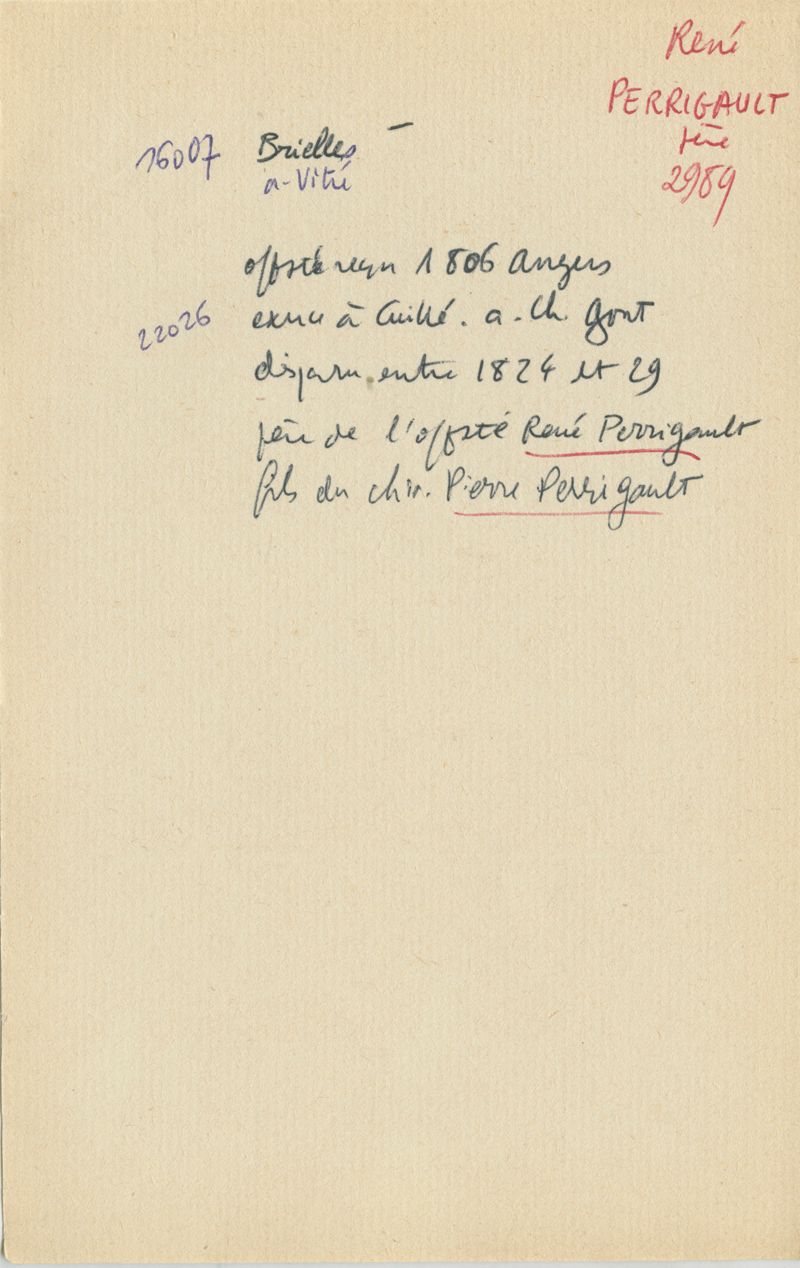 René
PERRIGAULT
père
2989
16007 Brielles –
a-Vitré
offsté reçu 1806 Angers
22026 exerce à Cuillé. a. Ch. Gont
disparu entre 1824 et 29
père de l'offsté René Perrigault
fils du chir. Pierre Perrigault